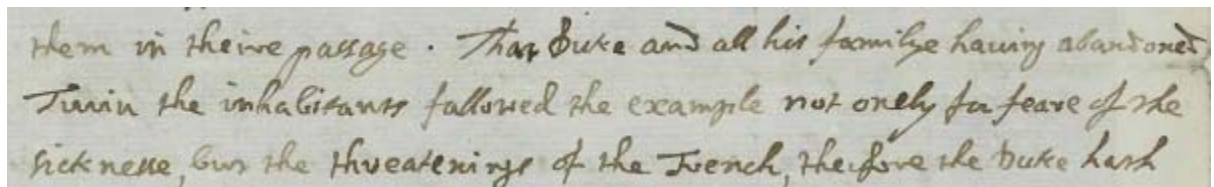 them in theire passage. That Duke and all his familye having abandoned
Turin the inhabitants followed the example not onely for feare of the
sicknesse, but the threatenings of the French, therfore the Duke hath